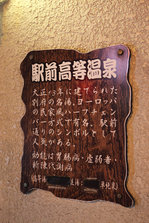 駅前高等温泉
大正13年に建てられた
別府の名湯。ヨーロッパ
の民家風ハーフチェン
バー方式で有名。駅前
通りのシンボルとして
人気がある。
効能は胃腸病・虚弱者・
新陳代謝病